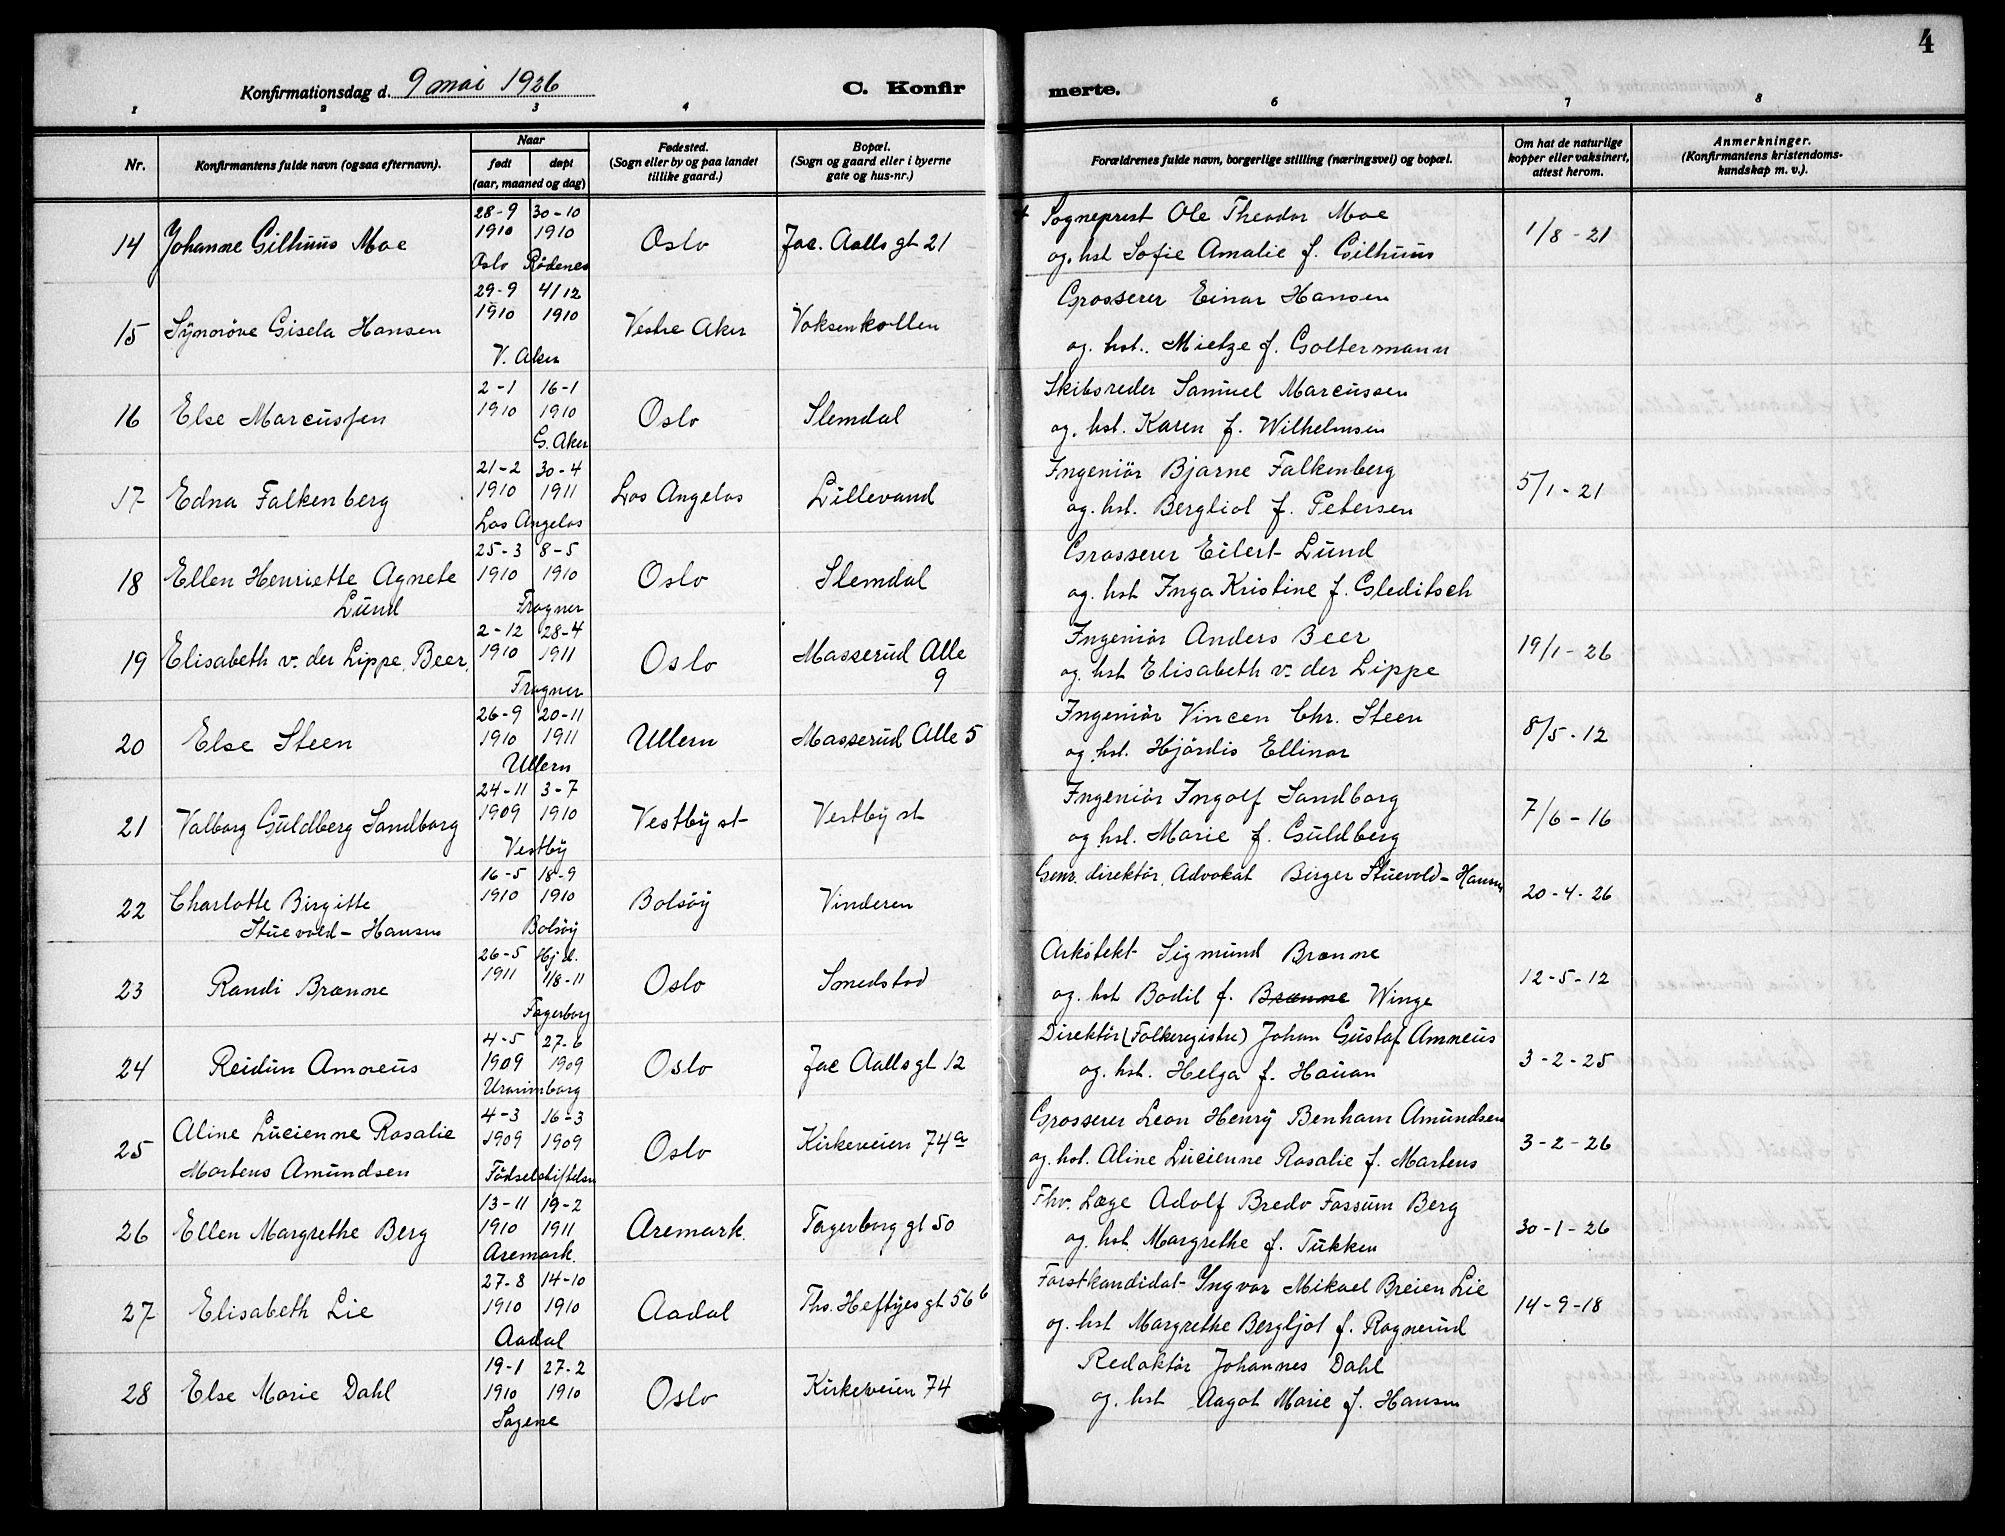 4
Konfirmationsdag d. 9 mai 1926
C. Konfir
merte.
1 2 3 4 6 7 8
Nr.
Konfirmantens fulde navn (ogsaa efternavn).
Naar
født
døpt
(aar, maaned og dag)
Fødested.
(Sogn eller by og paa landet
tillike gaard.)
Bopæl.
(Sogn og gaard eller i byerne
gate og hus-nr.)
Forældrenes fulde navn, borgerlige stilling (næringsvei) og bopæl.
Om hat de naturlige
kopper eller vaksinert,
attest herom.
Anmerkninger.
(Konfirmantens kristendoms-
kundskap m. v.).
28-9 30-10 Sogneprest Ole Theodor Moe
14 Johanne Gilhuus Moe 1910 1910 Oslo Jac. Aalls gt 21 1/8 - 21
Oslo Rødenes og. hst Sofie Amalie f. Gilhuus
29-9 4/12 Grosserer Einar Hansen
15 Synnöve Gisela Hansen 1910 1910 Vestre Aker Voksenkollen
V. Aker og. hst. Mietze f. Goltermann
2-1 16-1 Skibsreder Samuel Marcussen
16 Else Marcussen 1910 1910 Oslo Slemdal
G. Aker og. hst. Karen f. Wilhelmsen
21-2 30-4 Ingeniör Bjarne Falkenberg
17 Edna Falkenberg 1910 1911 Los Angelos Lillevand 5/1 - 21
Los Angelos og. hst. Bergliot f. Petersen
25-3 8-5 Grosserer Eilert Lund
18 Ellen Henriette Agnete 1910 1910 Oslo Slemdal
Lund Frogner og. hst Inga Kristine f. Gleditsch
2-12 28-4 Ingeniör Anders Beer
19 Elisabeth v. der Lippe Beer. 1910 1911 Oslo Masserud Alle 19/1 - 26
9
Frogner og. hst Elisabeth v. der Lippe
26-9 20-11 Ingeniör Vincen Chr. Steen
20 Else Steen 1910 1911 Ullern Masserud Alle 5 8/5 - 12
Ullern og. hst. Hjördis Ellinor
24-11 3-7 Ingeniör Ingolf Sandborg
21 Valborg Guldberg Sandborg 1909 1910 Vestby st Vestby st 7/6 - 16
Vestby og hst. Marie f. Guldberg
16-5 18-9 Genr. direktör, Advokat Birger Stuevold-Hansen
22 Charlotte Birgitte 1910 1910 Bolsöy Vinderen 20-4-26
Stuevold-Hansen Bolsöy
26-5 Hj.d. Arkitekt Sigmund Brænne
23 Randi Brænne 1911 1/8-11 Oslo Smedstad 12-5-12
Fagerborg og. hst Bodil f. Brænne Winge
4-5 27-6 Direktör (Folkeregistre) Johan Gustaf Amneus
24 Reidun Amneus 1909 1909 Oslo Jac Aalls gt 12 3-2-25
Uranienborg og. hst. Helga f. Hauan
4-3 16-3 Grosserer Leon Henry Benham Amundsen
25 Aline Lucienne Rosalie 1909 1909 Oslo Kirkeveien 74a 3-2-26
Martens Amundsen Födselsstiftelsen og. hst. Aline Lucienne Rosalie f. Martens
13-11 19-2 Fhv. Læge Adolf Bredo Fossum Berg
26 Ellen Margrethe Berg 1910 1911 Aremark. Fagerborg gt 50 30-1-26
Aremark. og. hst. Margrethe f. Tukken
27-8 14-10 Forstkandidat Yngvar Mikael Breien Lie
27 Elisabeth Lie 1910 1910 Aadal Ths. Heftyes gt 56 b 14-9-18
Aadal og. hst Margrethe Bergljot f. Rognerud
19-1 27-2 Redaktör Johannes Dahl
28 Else Marie Dahl 1910 1910 Oslo Kirkeveien 74
Sagene og. hst Aagot Marie f. Hansen